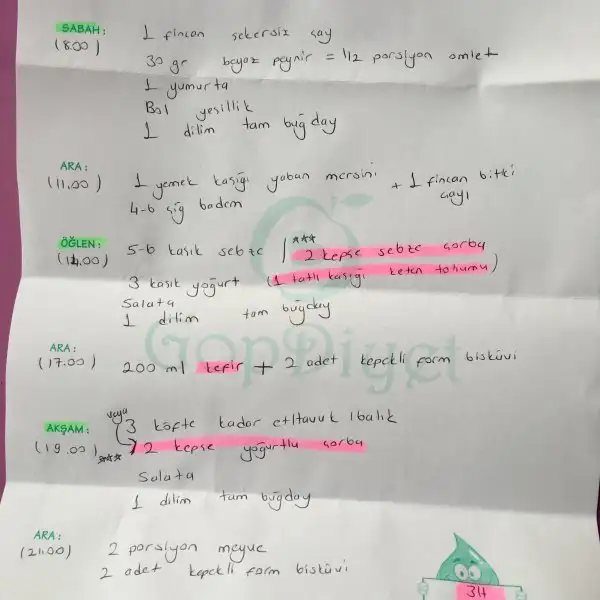 SABAH: 1 fincan şekersiz çay
(8.00) 30 gr beyaz peynir = 1/2 porsiyon omlet
1 yumurta
Bol yeşillik
1 dilim tam buğday
ARA:
(11.00) 1 yemek kaşığı yaban mersini + 1 fincan bitki çayı
4-6 çiğ badem
ÖĞLEN: 5-6 kaşık sebze / *** 2 kepse sebze çorba
(14.00) 3 kaşık yoğurt (1 tatlı kaşığı keten tohumu)
Salata
1 dilim tam buğday
GopDiyet
ARA:
(17.00) 200 ml kefir + 2 adet kepekli form bisküvi
AKŞAM: veya 3 köfte kadar et/tavuk/balık
(19.00) *** 2 kepse yoğurtlu çorba
Salata
1 dilim tam buğday
ARA:
(21.00) 2 porsiyon meyve
2 adet kepekli form bisküvi